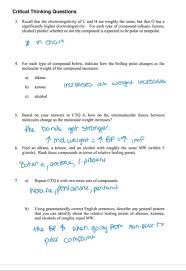 Critical Thinking Questions
3. Recall that the electronegativity of C and H are roughly the same, but that O has a
significantly higher electronegativity. For each type of compound (alkane, ketone,
alcohol) predict whether or not the compound is expected to be polar or nonpolar.
* in chart
4. For each type of compound below, indicate how the boiling point changes as the
molecular weight of the compound increases:
a) alkane
b) ketone
c) alcohol
increases as weight increases
5. Based on your answers to CTQ 4, how do the intermolecular forces between
molecules change as the molecular weight increases?
the bonds get stronger.
↑ mol. weight = ↑ BP = ↑ imf
6. Find an alkane, ketone, and an alcohol with roughly the same MW (within 5
g/mole). Rank these compounds in terms of relative boiling points.
Butane, acetone, 1-propanol
7. a) Repeat CTQ 6 with two more sets of compounds.
b) Using grammatically correct English sentences, describe any general pattern
that you can identify about the relative boiling points of alkanes, ketones, and
alcohols of roughly equal MW.
the BP ↑ when going from non-polar to
polar compound